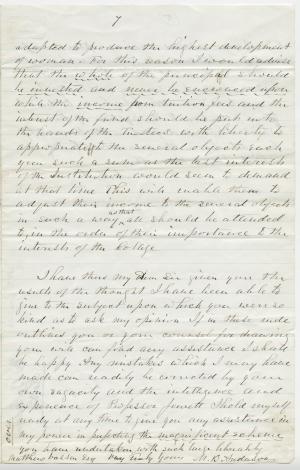 7
adapted to produce the highest development
of woman. For this reason I would advise
that the whole of the principal should
be invested and never be encroached upon
while the income from tuition fees and the
interest of the fund should be put into
the hands of the Trustees with liberty to
appropriate to the several objects each
year such a sum as the best interests
of the Institution would seem to demand
at that time This will enable them to
adjust their income to the several objects
in such a way as that all should be attended
to, in the order of their importance to the
interests of the College.
I have thus my Dear Sir given you the
results of the thought I have been able to
give to the subject upon which you were so
kind as to ask my opinion If in these rude
outlines you or your counsel for drawing
your will can find any assistance I shall
be happy Any mistakes which I may have
made can readily be corrected by your
own sagacity and the intelligence and
experience of Professor Jewett I hold myself
ready at any time to give you any assistance in
my power in perfecting the magnificent scheme
you have undertaken with such large liberality
Matthew Vassar Esq Very truly yours